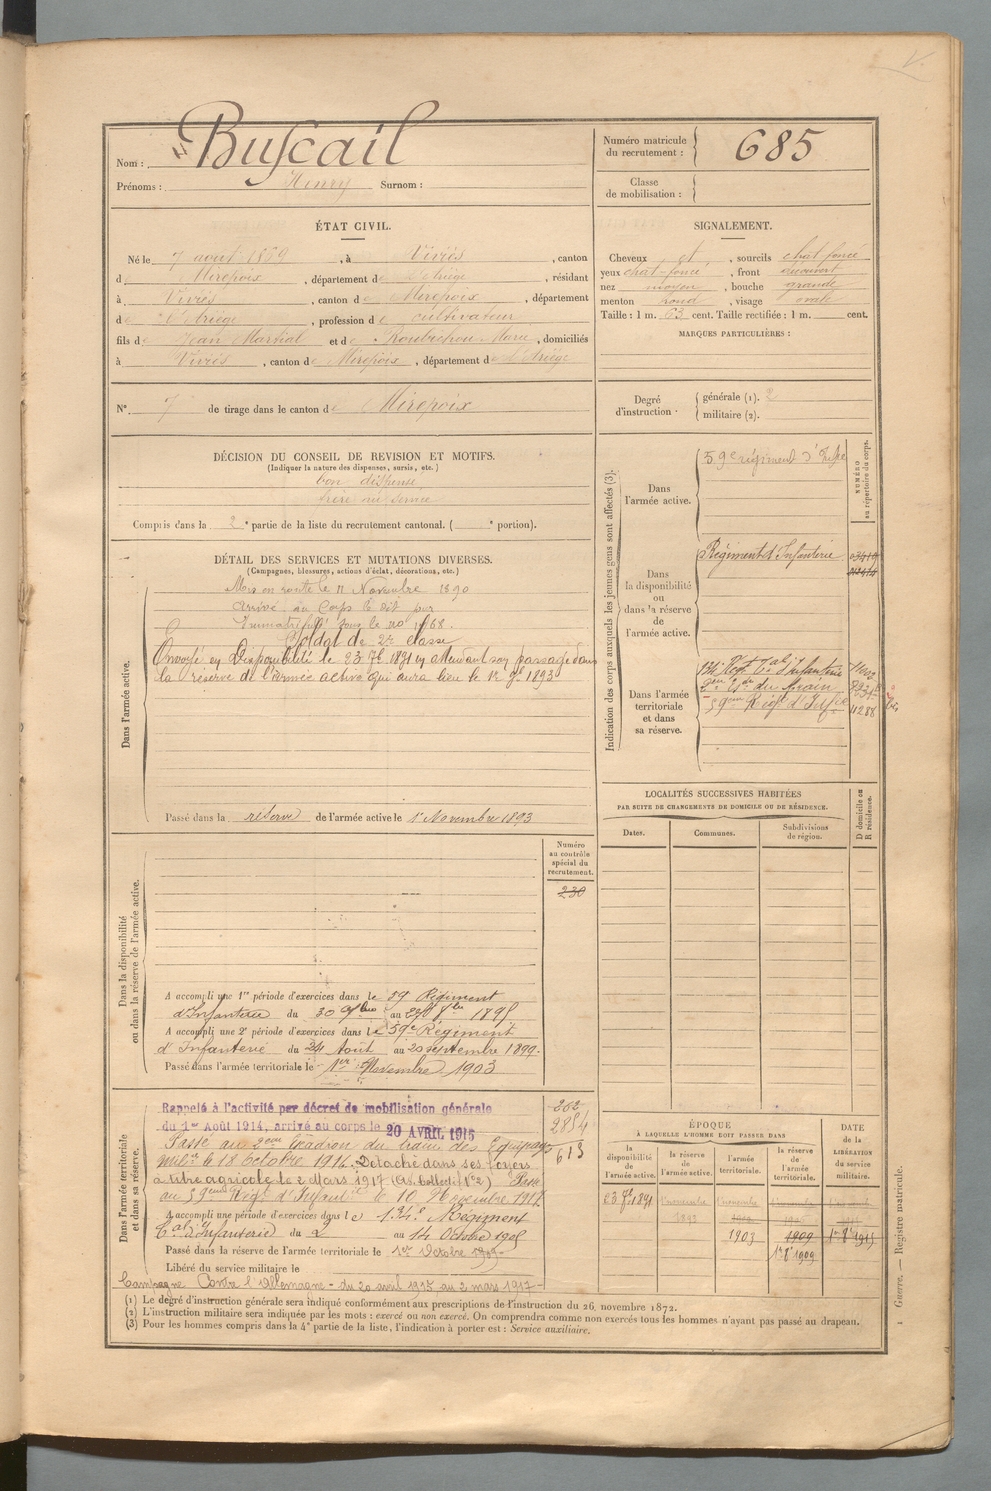 Nom : Buscail
Prénoms : Henry Surnom :
Numéro matricule du recrutement : 685
Classe de mobilisation :
ÉTAT CIVIL.
Né le 7 août 1869, à Viviès, canton
de Mirepoix, département de l'Ariège, résidant
à Viviès, canton de Mirepoix, département
de l'Ariège, profession de cultivateur
fils de Jean Martial et de Roubichou Marie, domiciliés
à Viviès, canton de Mirepoix, département de l'Ariège
N° 7 de tirage dans le canton de Mirepoix
SIGNALEMENT.
Cheveux et, sourcils chat foncé
yeux chat-foncé, front découvert
nez moyen, bouche grande
menton rond, visage ovale
Taille : 1 m. 63 cent. Taille rectifiée : 1 m. cent.
MARQUES PARTICULIÈRES :
Degré d'instruction : générale (1). 2
militaire (2).
DÉCISION DU CONSEIL DE REVISION ET MOTIFS.
(Indiquer la nature des dispenses, sursis, etc.)
bon dispensé
frère au service
Compris dans la 2e partie de la liste du recrutement cantonal. ( e portion).
DÉTAIL DES SERVICES ET MUTATIONS DIVERSES.
(Campagnes, blessures, actions d'éclat, décorations, etc.)
Dans l'armée active.
Mis en route le 11 Novembre 1890
arrivé au Corps le dit jour
Immatriculé sous le no
Soldat de 2e classe
Envoyé en Disponibilité le 23 7bre 1891 en attendant son passage dans
la réserve de l'armée active qui aura lieu le 1er 9bre 1893
Passé dans la réserve de l'armée active le 1er Novembre 1893
Dans la disponibilité ou dans la réserve de l'armée active.
Numéro au contrôle spécial du recrutement.
230
A accompli une 1re période d'exercices dans le 59 Régiment
d'Infanterie du 30 au 1895
A accompli une 2e période d'exercices dans le 59e Régiment
d'Infanterie du 24 Août au 20 septembre 1899.
Passé dans l'armée territoriale le 1er Novembre 1903
Dans l'armée territoriale et dans sa réserve.
262
2854
613
Rappelé à l'activité par décret de mobilisation générale
du 1er Août 1914, arrivé au corps le 20 AVRIL 1915
Passé au 2eme Escadron du train des Equipages
milres le 18 Octobre 1916. Détaché dans ses foyers
à titre agricole le 2 Mars 1917 Passé
au 59eme Régt d'Infanterie le 10 Novembre 1917.
A accompli une période d'exercices dans le 134e Régiment
tal d'Infanterie du 2 au 14 Octobre 1905
Passé dans la réserve de l'armée territoriale le 1er Octobre 1909
Libéré du service militaire le
Campagne Contre l'Allemagne - du 20 avril 1915 au 2 mars 1917 -
Indication des corps auxquels les jeunes gens sont affectés (3).
NUMÉRO au répertoire du corps.
Dans l'armée active.
59e régiment d'Infie
Dans la disponibilité ou dans la réserve de l'armée active.
Régiment d'Infanterie
Dans l'armée territoriale et dans sa réserve.
134e Regt Tal d'Infanterie
2eme Esdn du train
59eme Regt d'Infie
11288
LOCALITÉS SUCCESSIVES HABITÉES
PAR SUITE DE CHANGEMENTS DE DOMICILE OU DE RÉSIDENCE.
Dates. Communes. Subdivisions de région. D domicile ou R résidence.
ÉPOQUE
À LAQUELLE L'HOMME DOIT PASSER DANS
la disponibilité de l'armée active. la réserve de l'armée active. l'armée territoriale. la réserve de l'armée territoriale.
DATE de la LIBÉRATION du service militaire.
23 7bre 1891 1er novembre 1893 1er novembre
1903 1909 1er 8bre 1915
1er 8bre 1909
(1) Le degré d'instruction générale sera indiqué conformément aux prescriptions de l'instruction du 26 novembre 1872.
(2) L'instruction militaire sera indiquée par les mots : exercé ou non exercé. On comprendra comme non exercés tous les hommes n'ayant pas passé au drapeau.
(3) Pour les hommes compris dans la 4e partie de la liste, l'indication à porter est : Service auxiliaire.
Guerre. — Registre matricule.